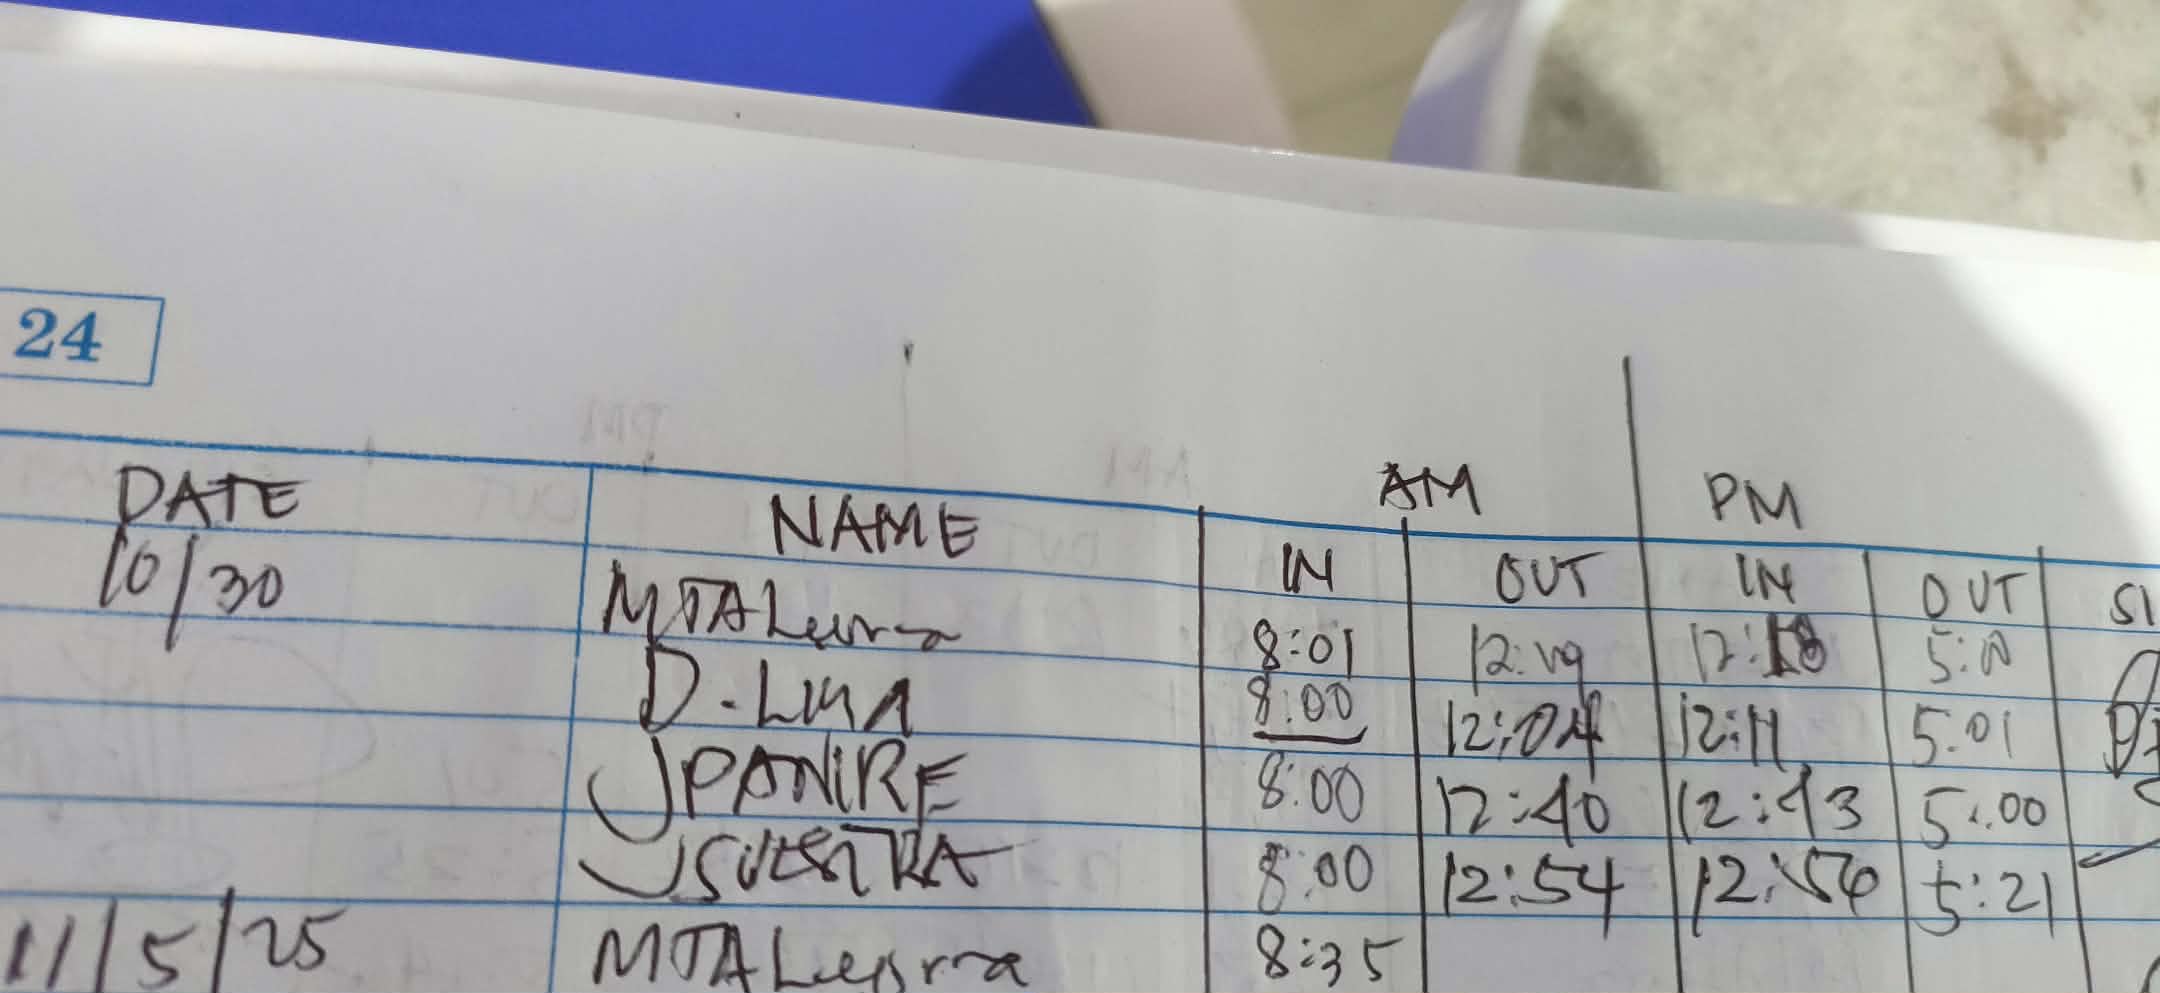 24
AM PM
DATE NAME IN OUT IN OUT SI
10/30 8:01 12:18
D. 8:00 12:04 12:11 5:01
JPANIRE 8:00 12:40 12:43 5:00
8:00 12:54 12:56 5:21
11/5/25 8:35